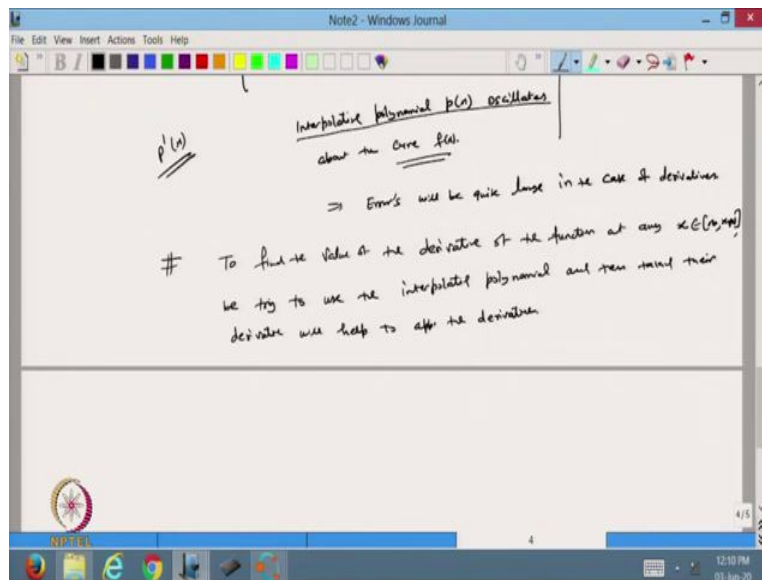 Note2 - Windows Journal
File Edit View Insert Actions Tools Help
B I
Interpolative polynomial p(x) oscillates
p'(x)
about the curve f(x).
⇒ Error's will be quite large in the case of derivatives
# To find the value of the derivative of the function at any x ∈ [x0, xn]
be try to use the interpolated polynomial and then taking their
derivative will help to the derivatives
NPTEL
4/5
4
12:10 PM
03-Jun-20